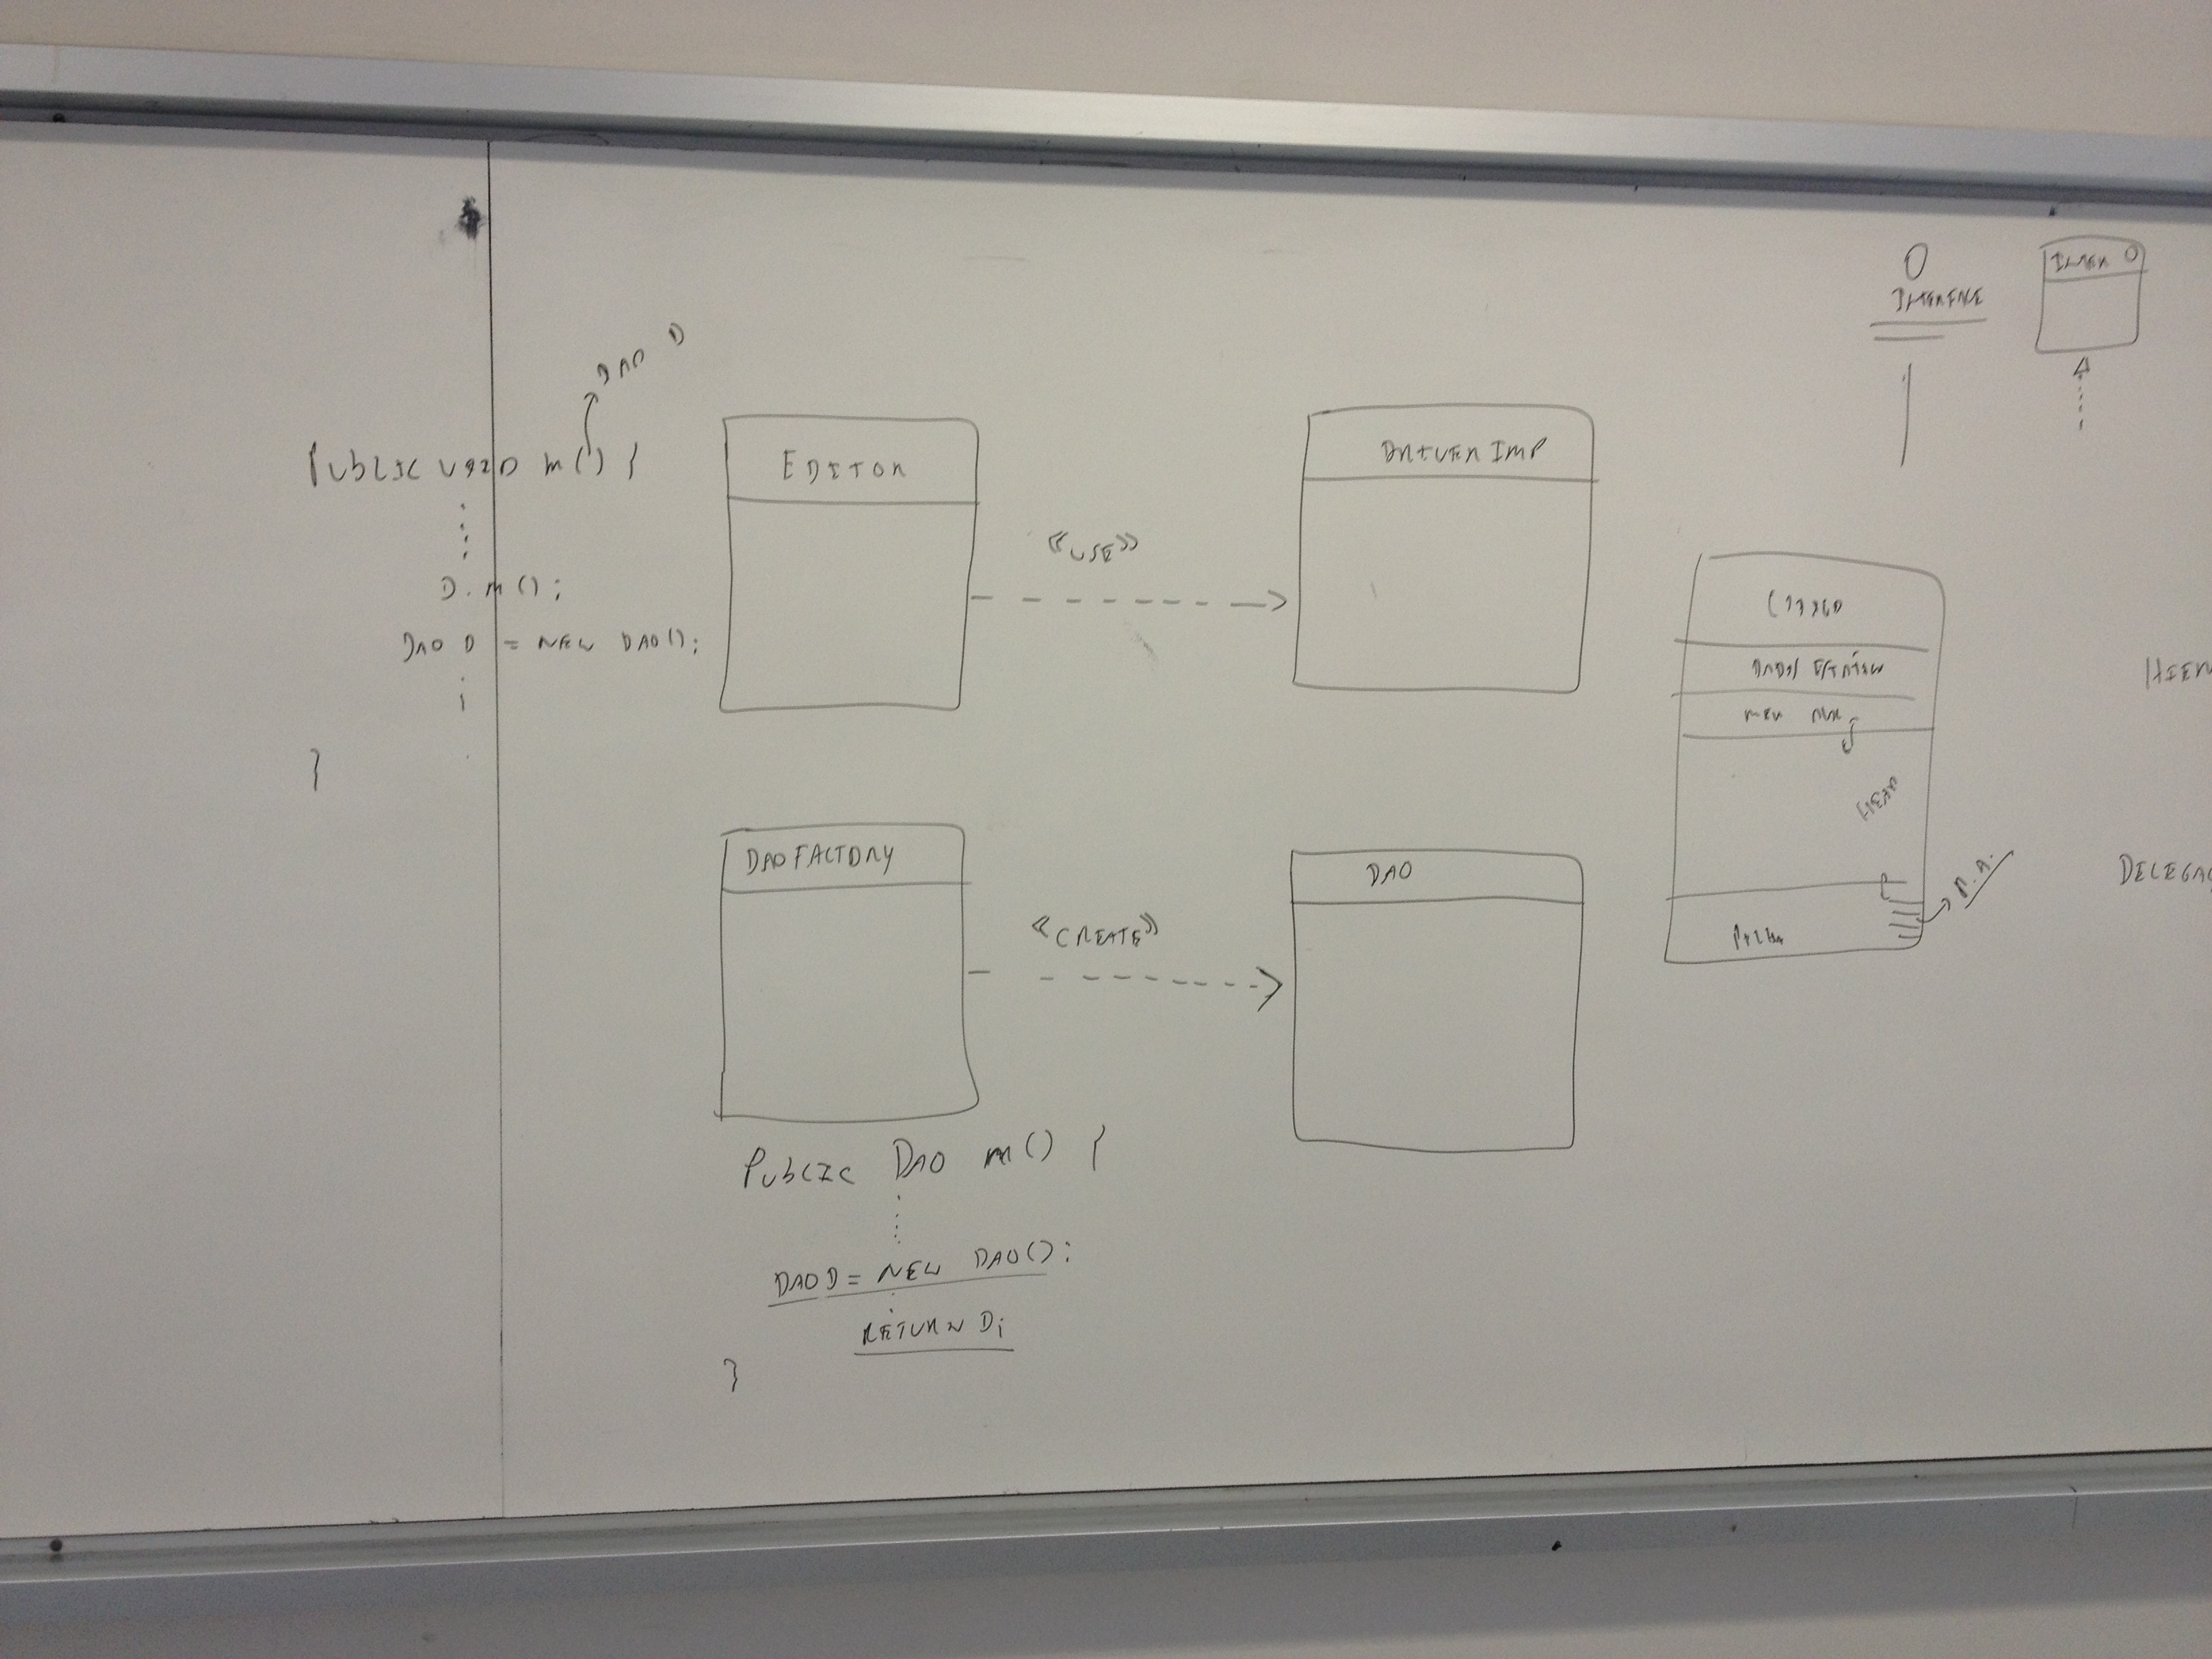 DAO D
PUBLIC VOID m() {
D.m();
DAO D = NEW DAO();
}
EDITOR
<<USE>>
DRIVER IMP
DAO FACTORY
<<CREATE>>
DAO
PUBLIC DAO m() {
DAO D = NEW DAO();
RETURN D;
}
INTERFACE
INTER
CÓDIGO
DADOS ESTÁTICOS
HEAP
PILHA
R.A.
HIER
DELEGAÇ